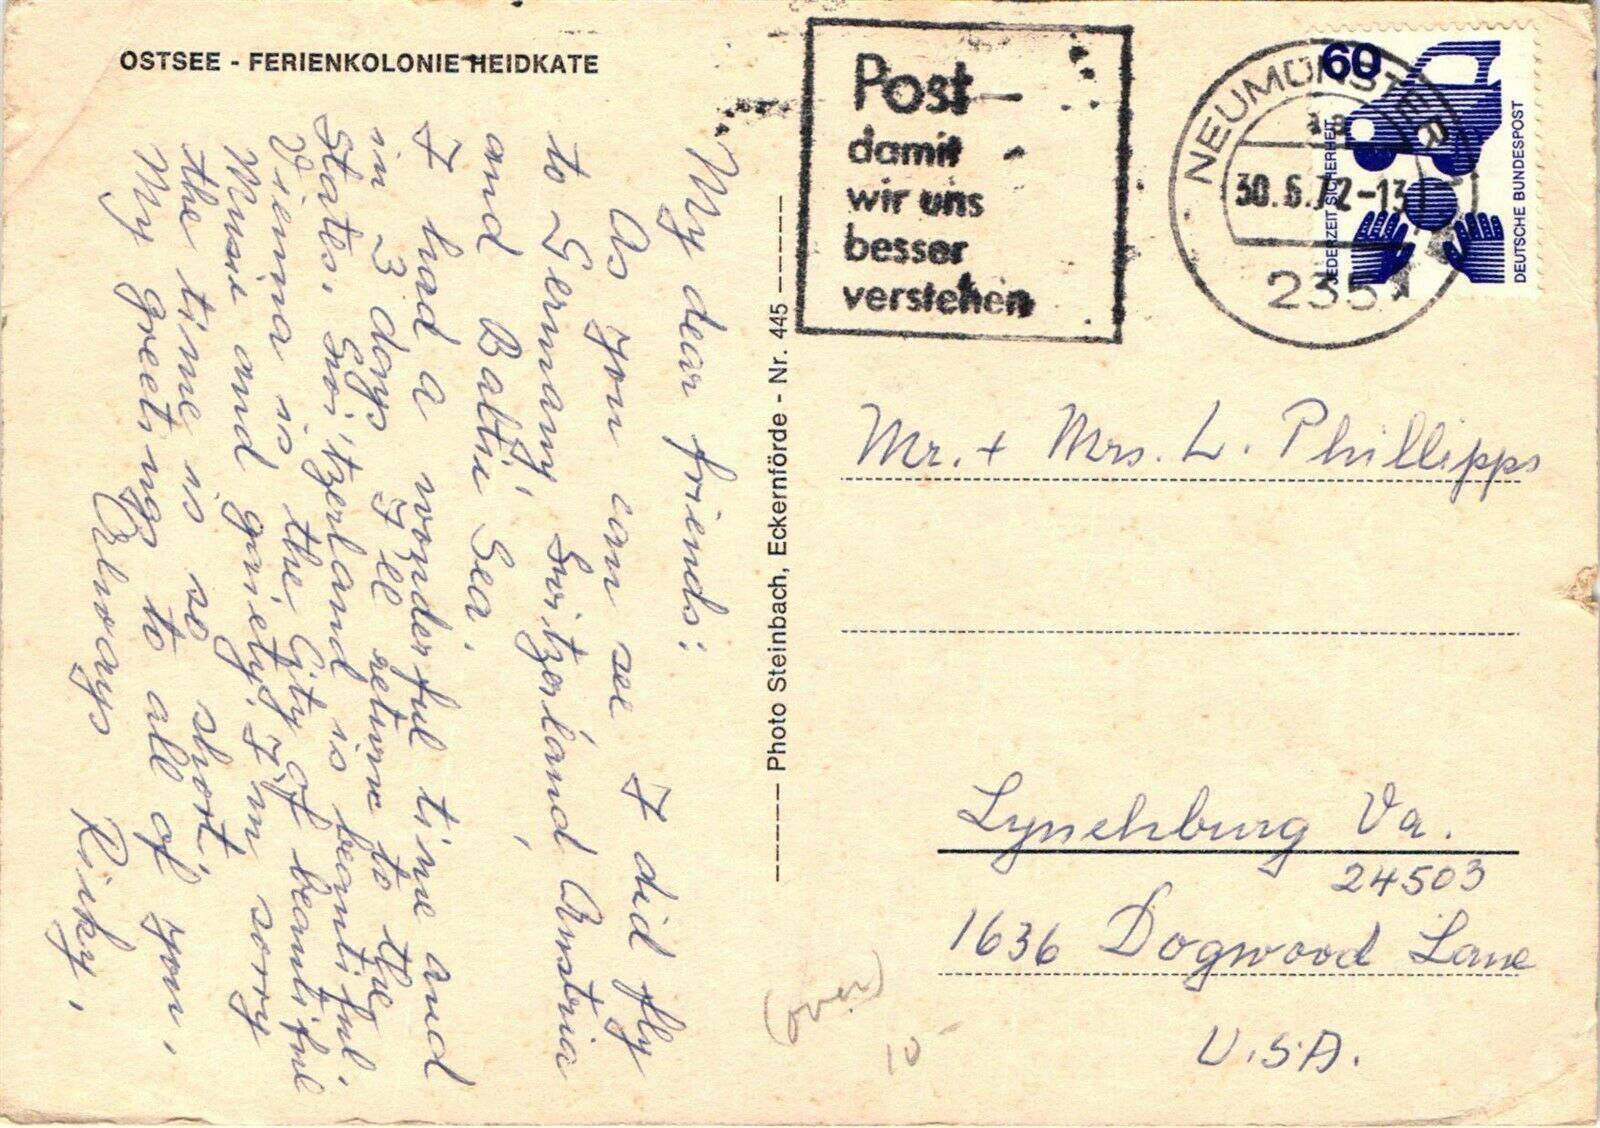 OSTSEE - FERIENKOLONIE HEIDKATE
My dear friends:
As you can see I did fly
to Germany, Switzerland Austria
and Baltic Sea.
I had a wonderful time and
in 3 days I'll return to the
States. Switzerland is beautiful.
Vienna is the City of beautiful
Music and gaiety. I'm sorry
the time is so short.
My greetings to all of you,
Always
Photo Steinbach, Eckernförde - Nr. 445
Post
damit
wir uns
besser
verstehen
NEUMÜNSTER 1
30.6.72-13
235
60
JEDERZEIT SICHERHEIT
DEUTSCHE BUNDESPOST
Mr. + Mrs. L. Phillipps
Lynchburg Va.
24503
1636 Dogwood Lane
U.S.A.
(over)
10-